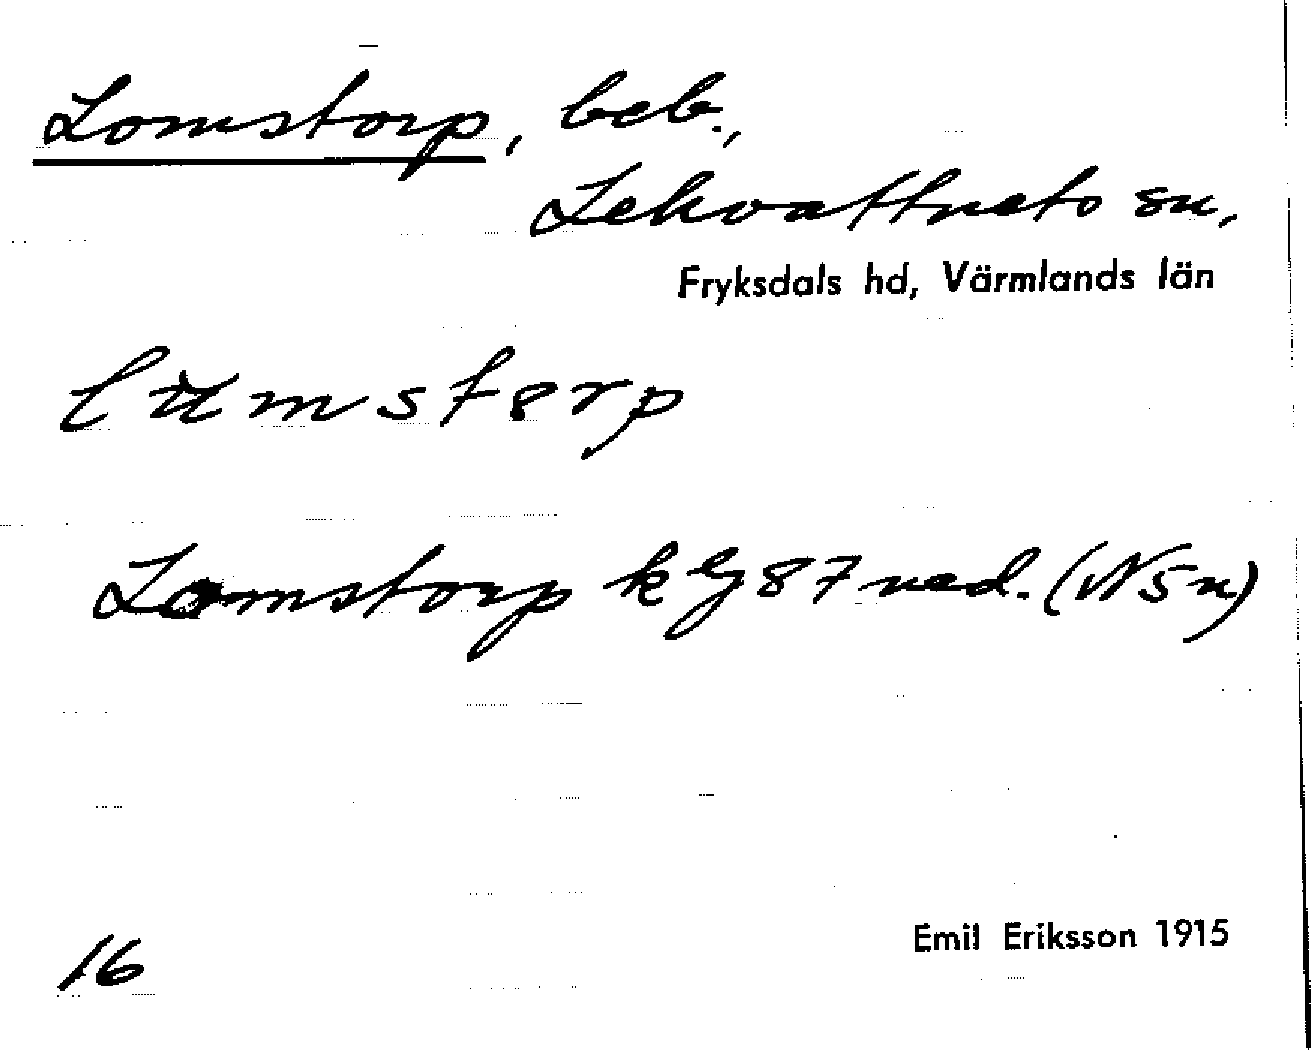 Lomstorp, beb.,
Lekvattnets sn,
Fryksdals hd, Värmlands län
Lomstorp k Gj 87 ned. (NSn)
16
Emil Eriksson 1915